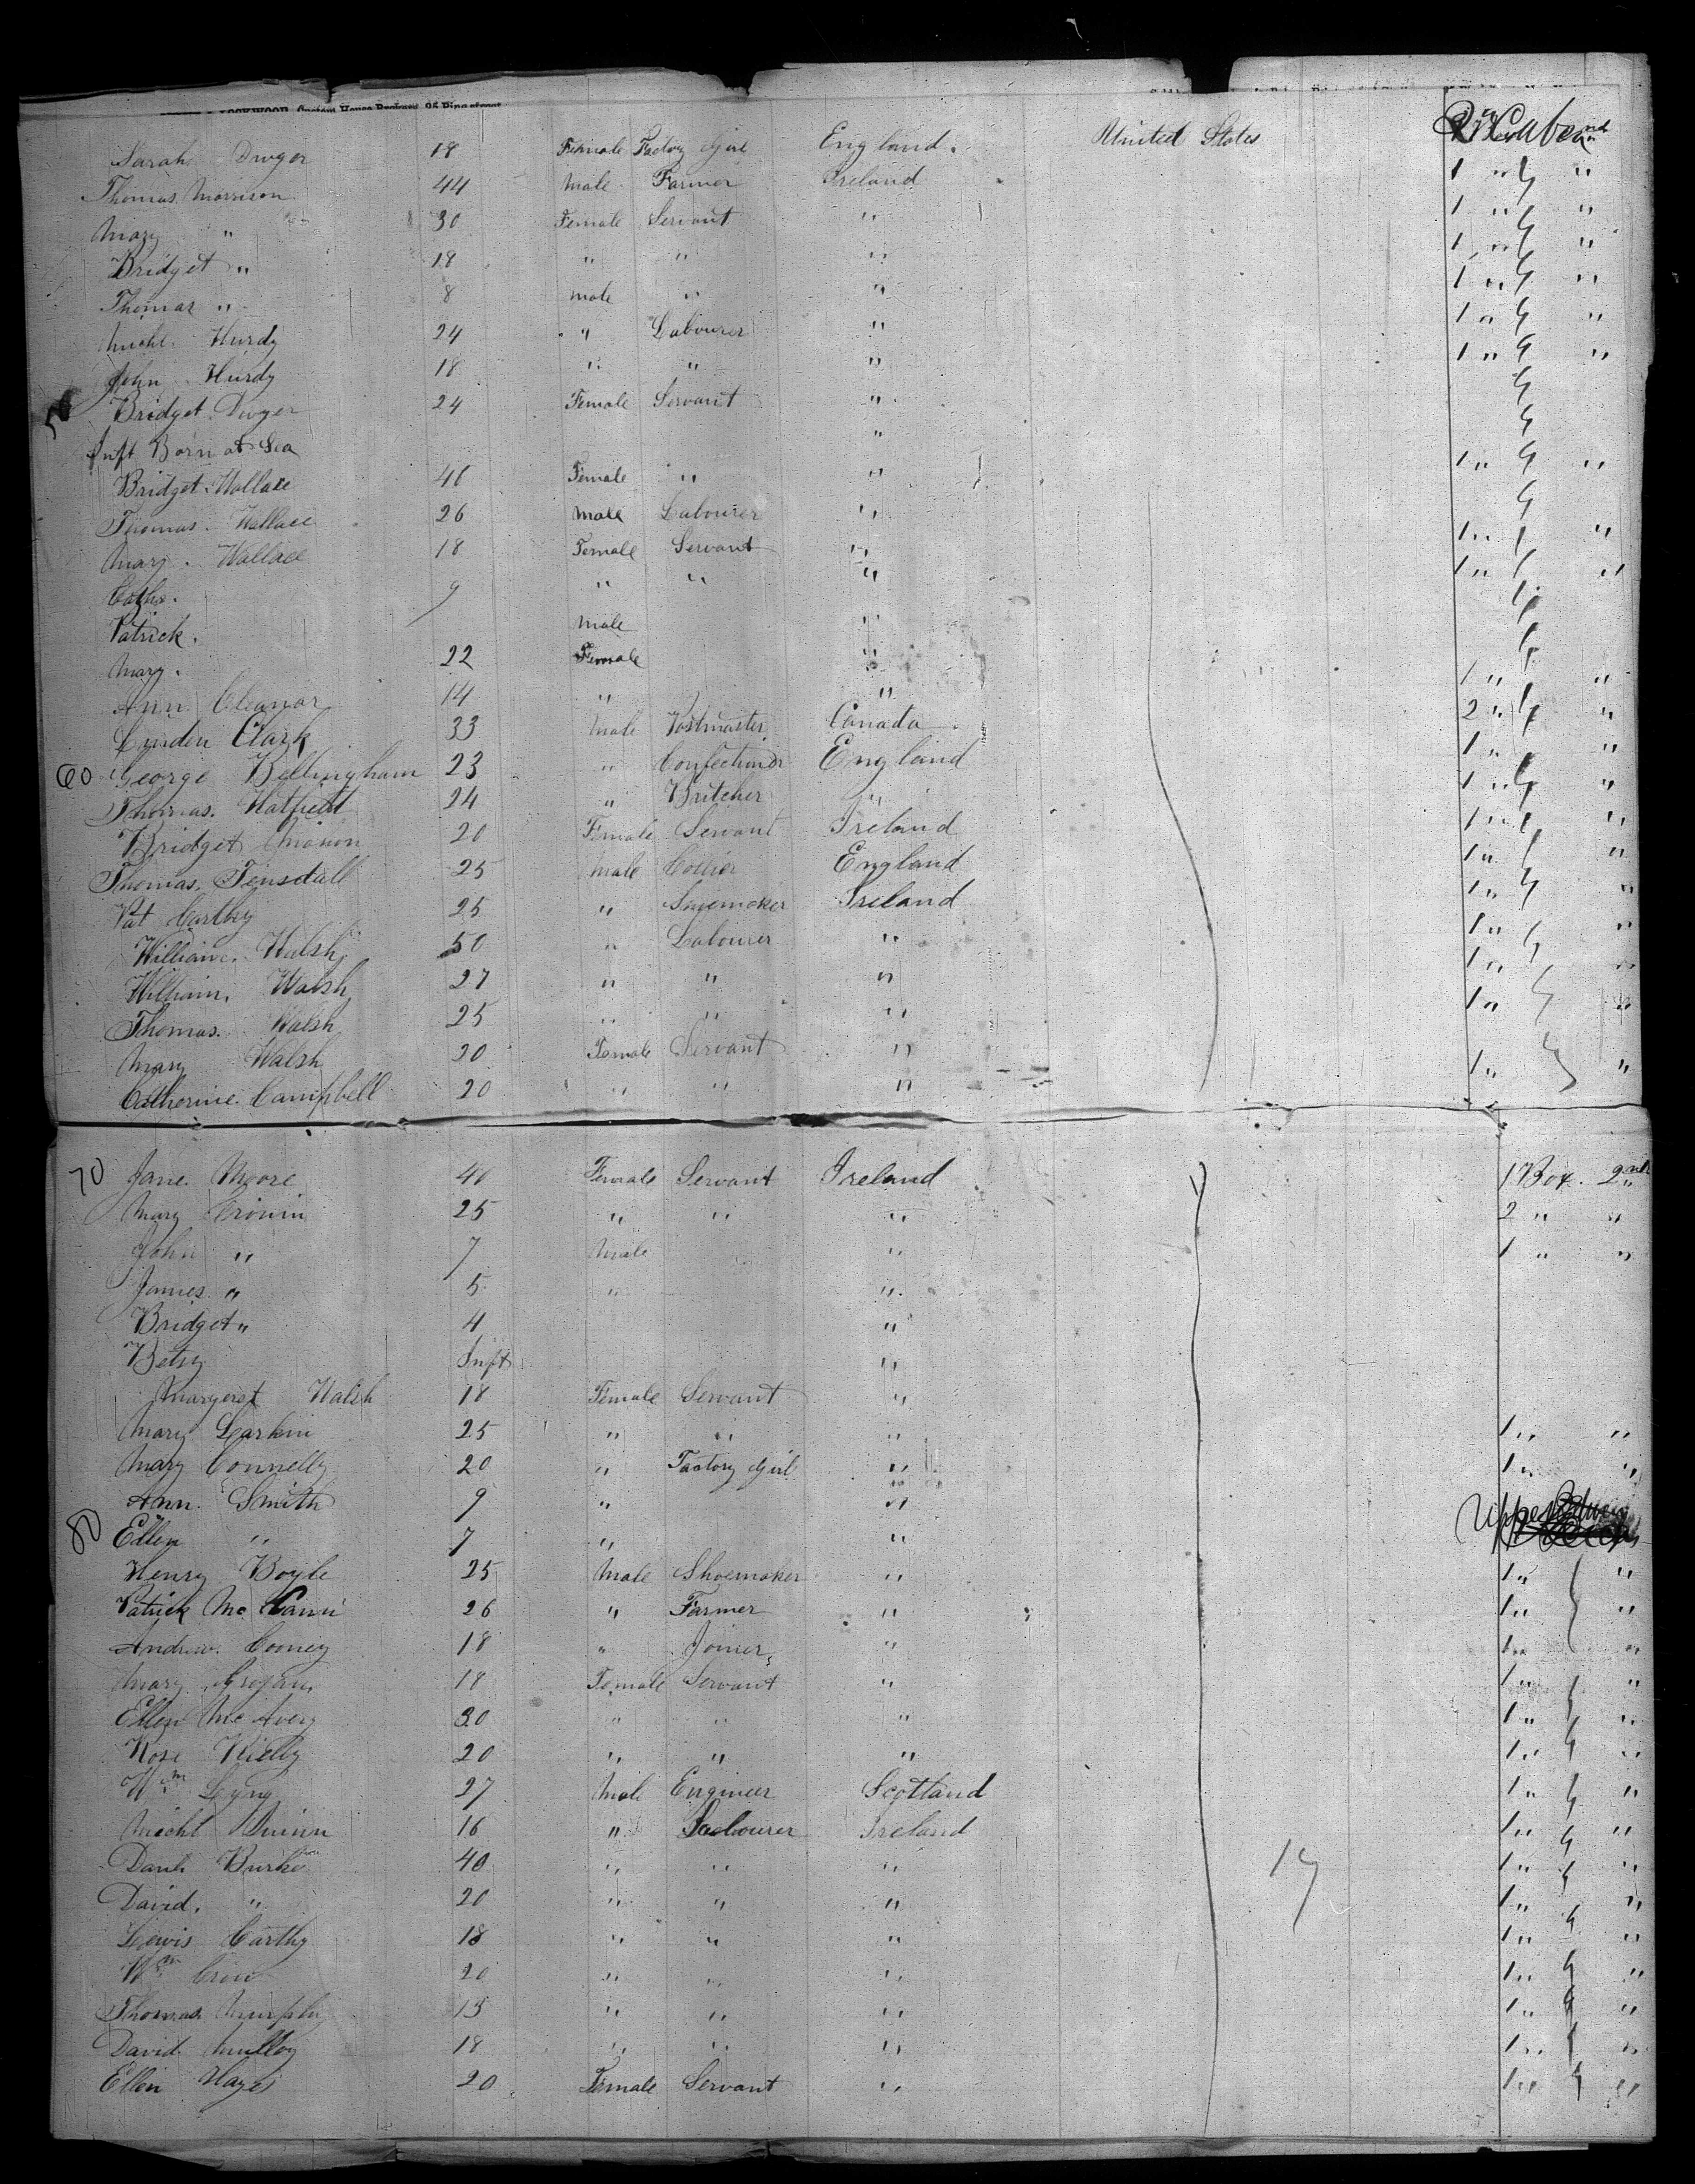 LOCKWOOD, Custom House Brokers, 95 Pine street
Sarah Dwyer 18 Female Factory Girl England. United States Cabin
Thomas Morrison 44 Male Farmer Ireland 1 " "
Mary " 30 Female Servant " 1 " "
Bridget " 18 " " " 1 " "
Thomas " 8 male " " 1 " "
Michl. Hurdy 24 " Labourer " 1 " "
John Hurdy 18 " " " 1 " "
50 Bridget Dwyer 24 Female Servant "
Inft Born at Sea "
Bridget Wallace 46 Female " " 1 " "
Thomas Wallace 26 Male Labourer "
Mary Wallace 18 Female Servant " 1 " "
Cath. 9 " " " 1 " "
Patrick. male "
Mary. 22 Female "
Ann Eleanor 14 " " 1 " "
Linden Clark 33 Male Postmaster Canada 2 " "
60 George Bellingham 23 " Confectioner England 1 " "
Thomas. Hatfield 24 " Butcher " 1 " "
Bridget Marion 20 Female Servant Ireland 1 " "
Thomas. Tinsdall 25 Male Collier England 1 " "
Pat Carthy 25 " Shoemaker Ireland 1 " "
William. Walsh 50 " Labourer " 1 " "
William. Walsh 27 " " " 1 " "
Thomas. Walsh 25 " " " 1 " "
Mary Walsh 20 Female Servant "
Catherine. Campbell 20 " " " 1 " "
70 Jane. Moore 40 Female Servant Ireland 1 Box. 2nd
Mary Cronin 25 " " " 2 " "
John " 7 Male " 1 " "
James " 5 " "
Bridget " 4 "
Betsy Inft "
Margeret Walsh 18 Female Servant "
Mary Larkin 25 " " " 1 " "
Mary Connelly 20 " Factory Girl " 1 " "
Ann. Smith 9 " " Upper
80 Ellen " 7 " "
Henry Boyle 25 Male Shoemaker " 1 " "
Patrick McCann 26 " Farmer " 1 " "
Andrew. Cooney 18 " Joiner " 1 " "
Mary Grogan 18 Female Servant " 1 " "
Ellen McAvery 30 " " " 1 " "
Rose Kielly 20 " " " 1 " "
Wm Lyng 27 Male Engineer Scotland 1 " "
Michl Quinn 16 " Labourer Ireland 1 " "
Danl. Burke 40 " " " 1 " "
David. " 20 " " " 1 " "
Lewis Carthy 18 " " " 1 " "
Wm 20 " " " 1 " "
Thomas Murphy 15 " " " 1 " "
David Mulloy 18 " " " 1 " "
Ellen Hayes 20 Female Servant " 1 " "